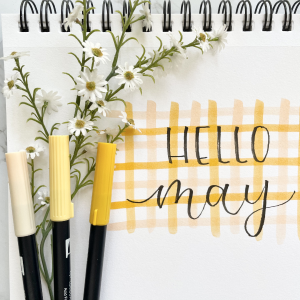 HELLO
may